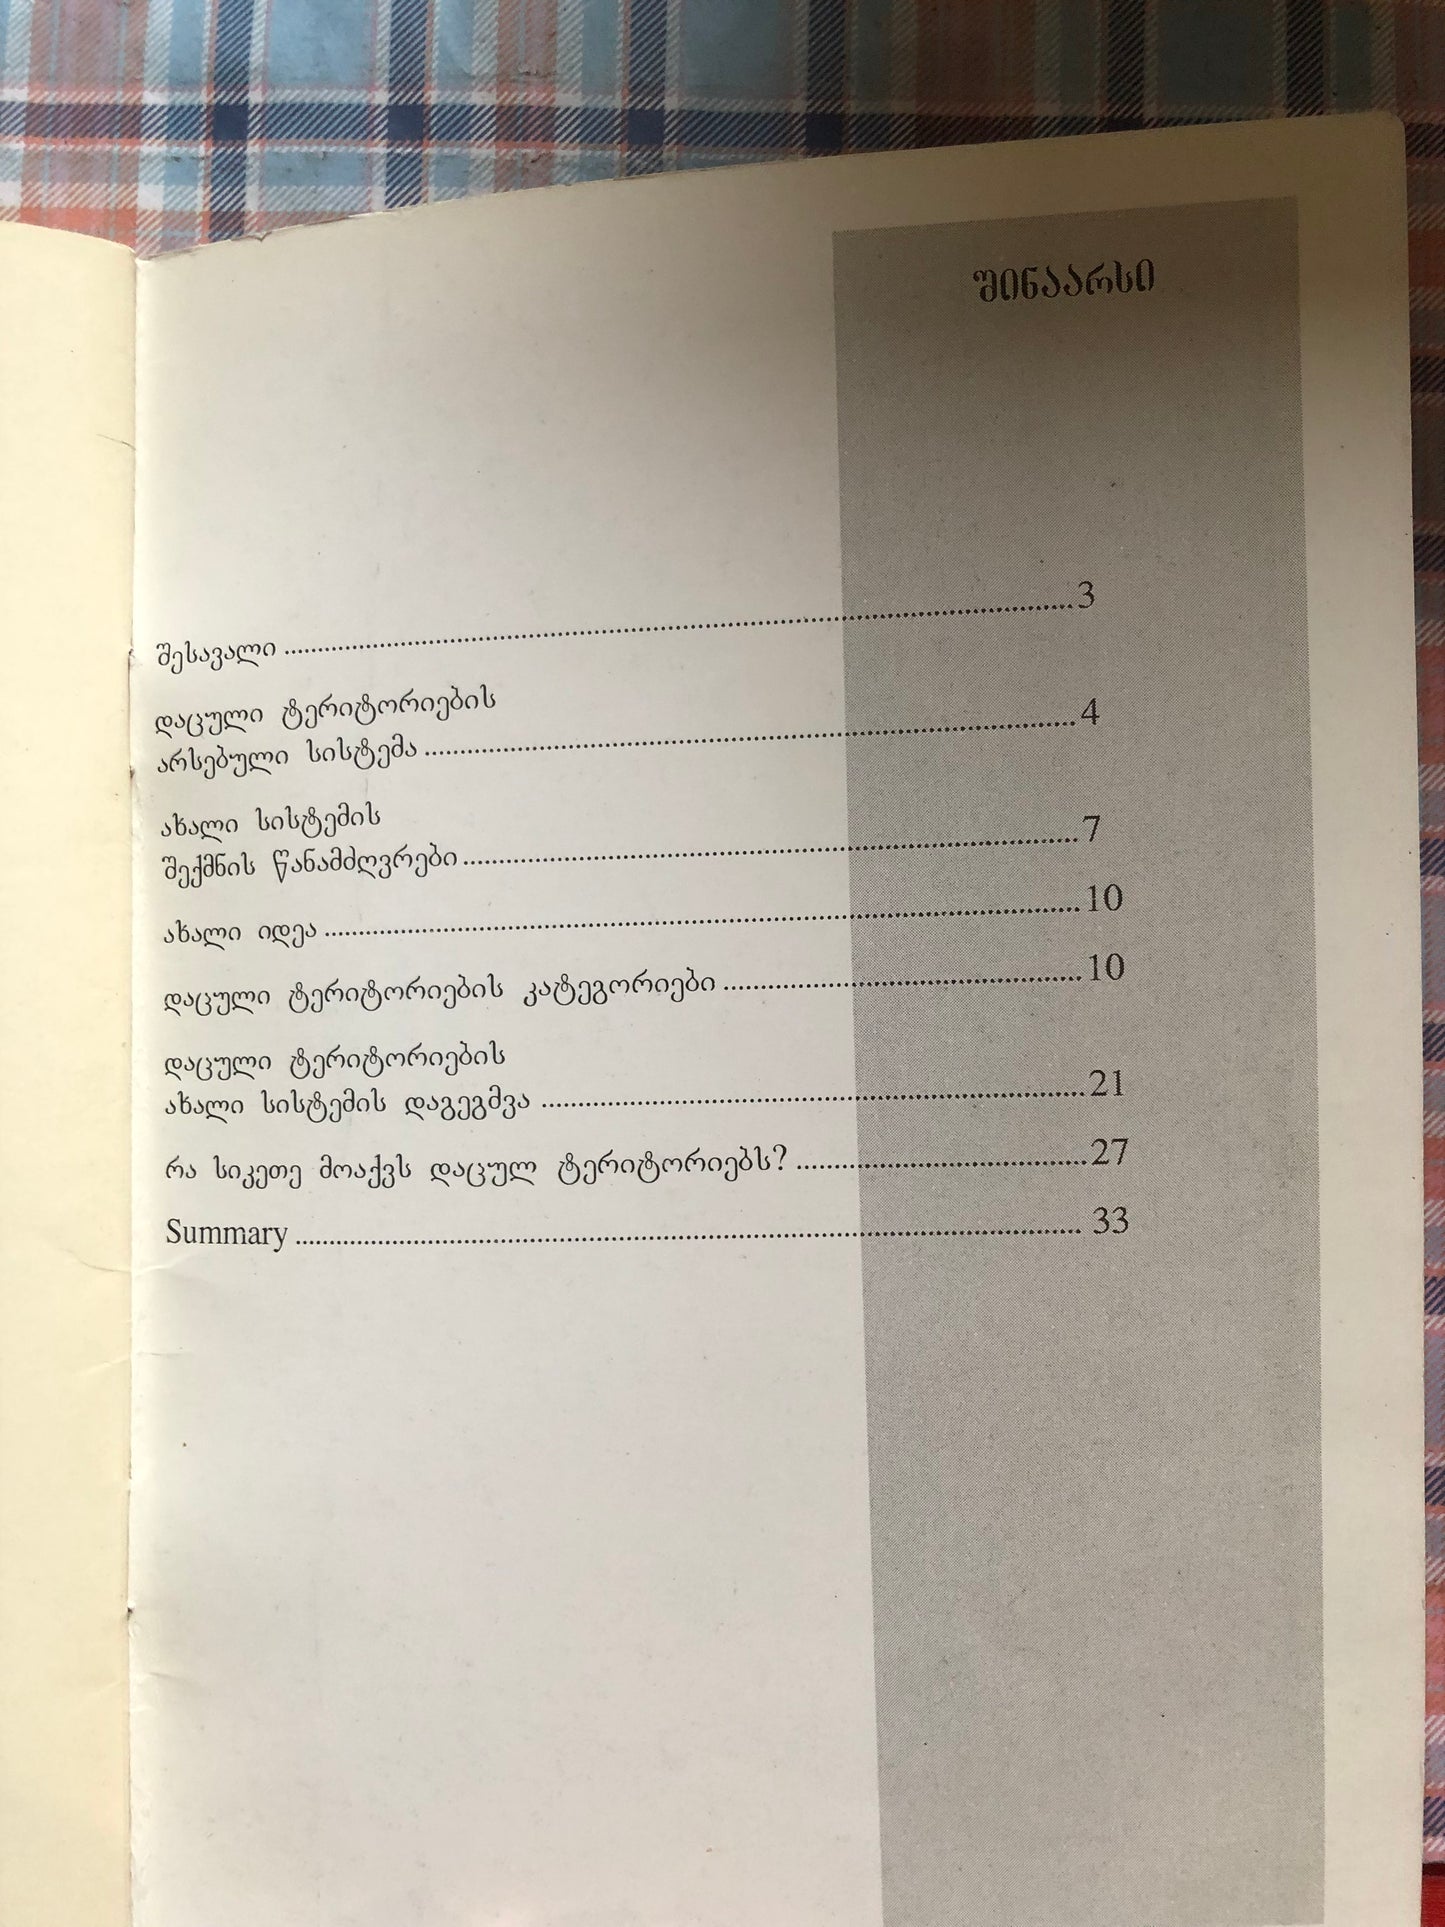 შინაარსი
შესავალი ........................................................................3
დაცული ტერიტორიების
არსებული სისტემა ........................................................................4
ახალი სისტემის
შექმნის წანამძღვრები ........................................................................7
ახალი იდეა ........................................................................10
დაცული ტერიტორიების კატეგორიები ........................................................................10
დაცული ტერიტორიების
ახალი სისტემის დაგეგმვა ........................................................................21
რა სიკეთე მოაქვს დაცულ ტერიტორიებს? ........................................................................27
Summary ........................................................................ 33